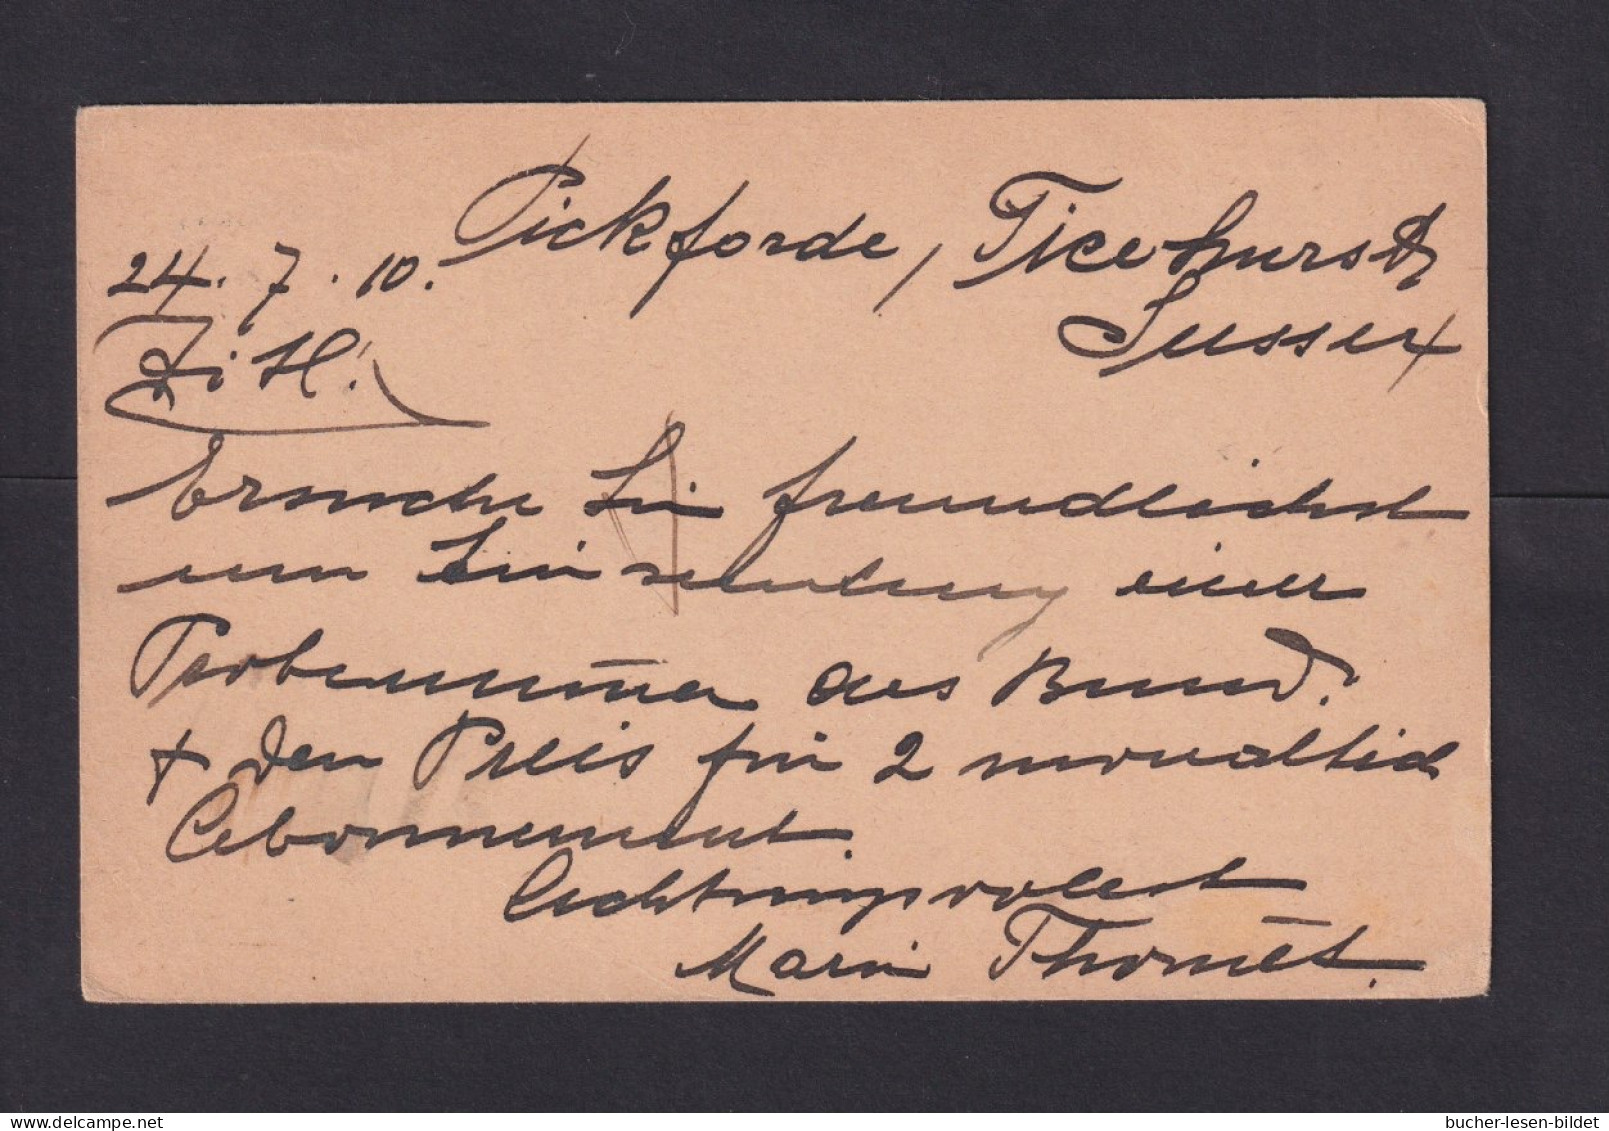 Pickforde, Ticehurst
24.7.10. Sussex
Ersuche Sie freundlichst
um Einsendung einer
Probenummer des Bund.
+ den Preis für 2 monatlich
Abonnement.
Achtungsvollest
Marie Thomét.
bucher-lesen-bildet